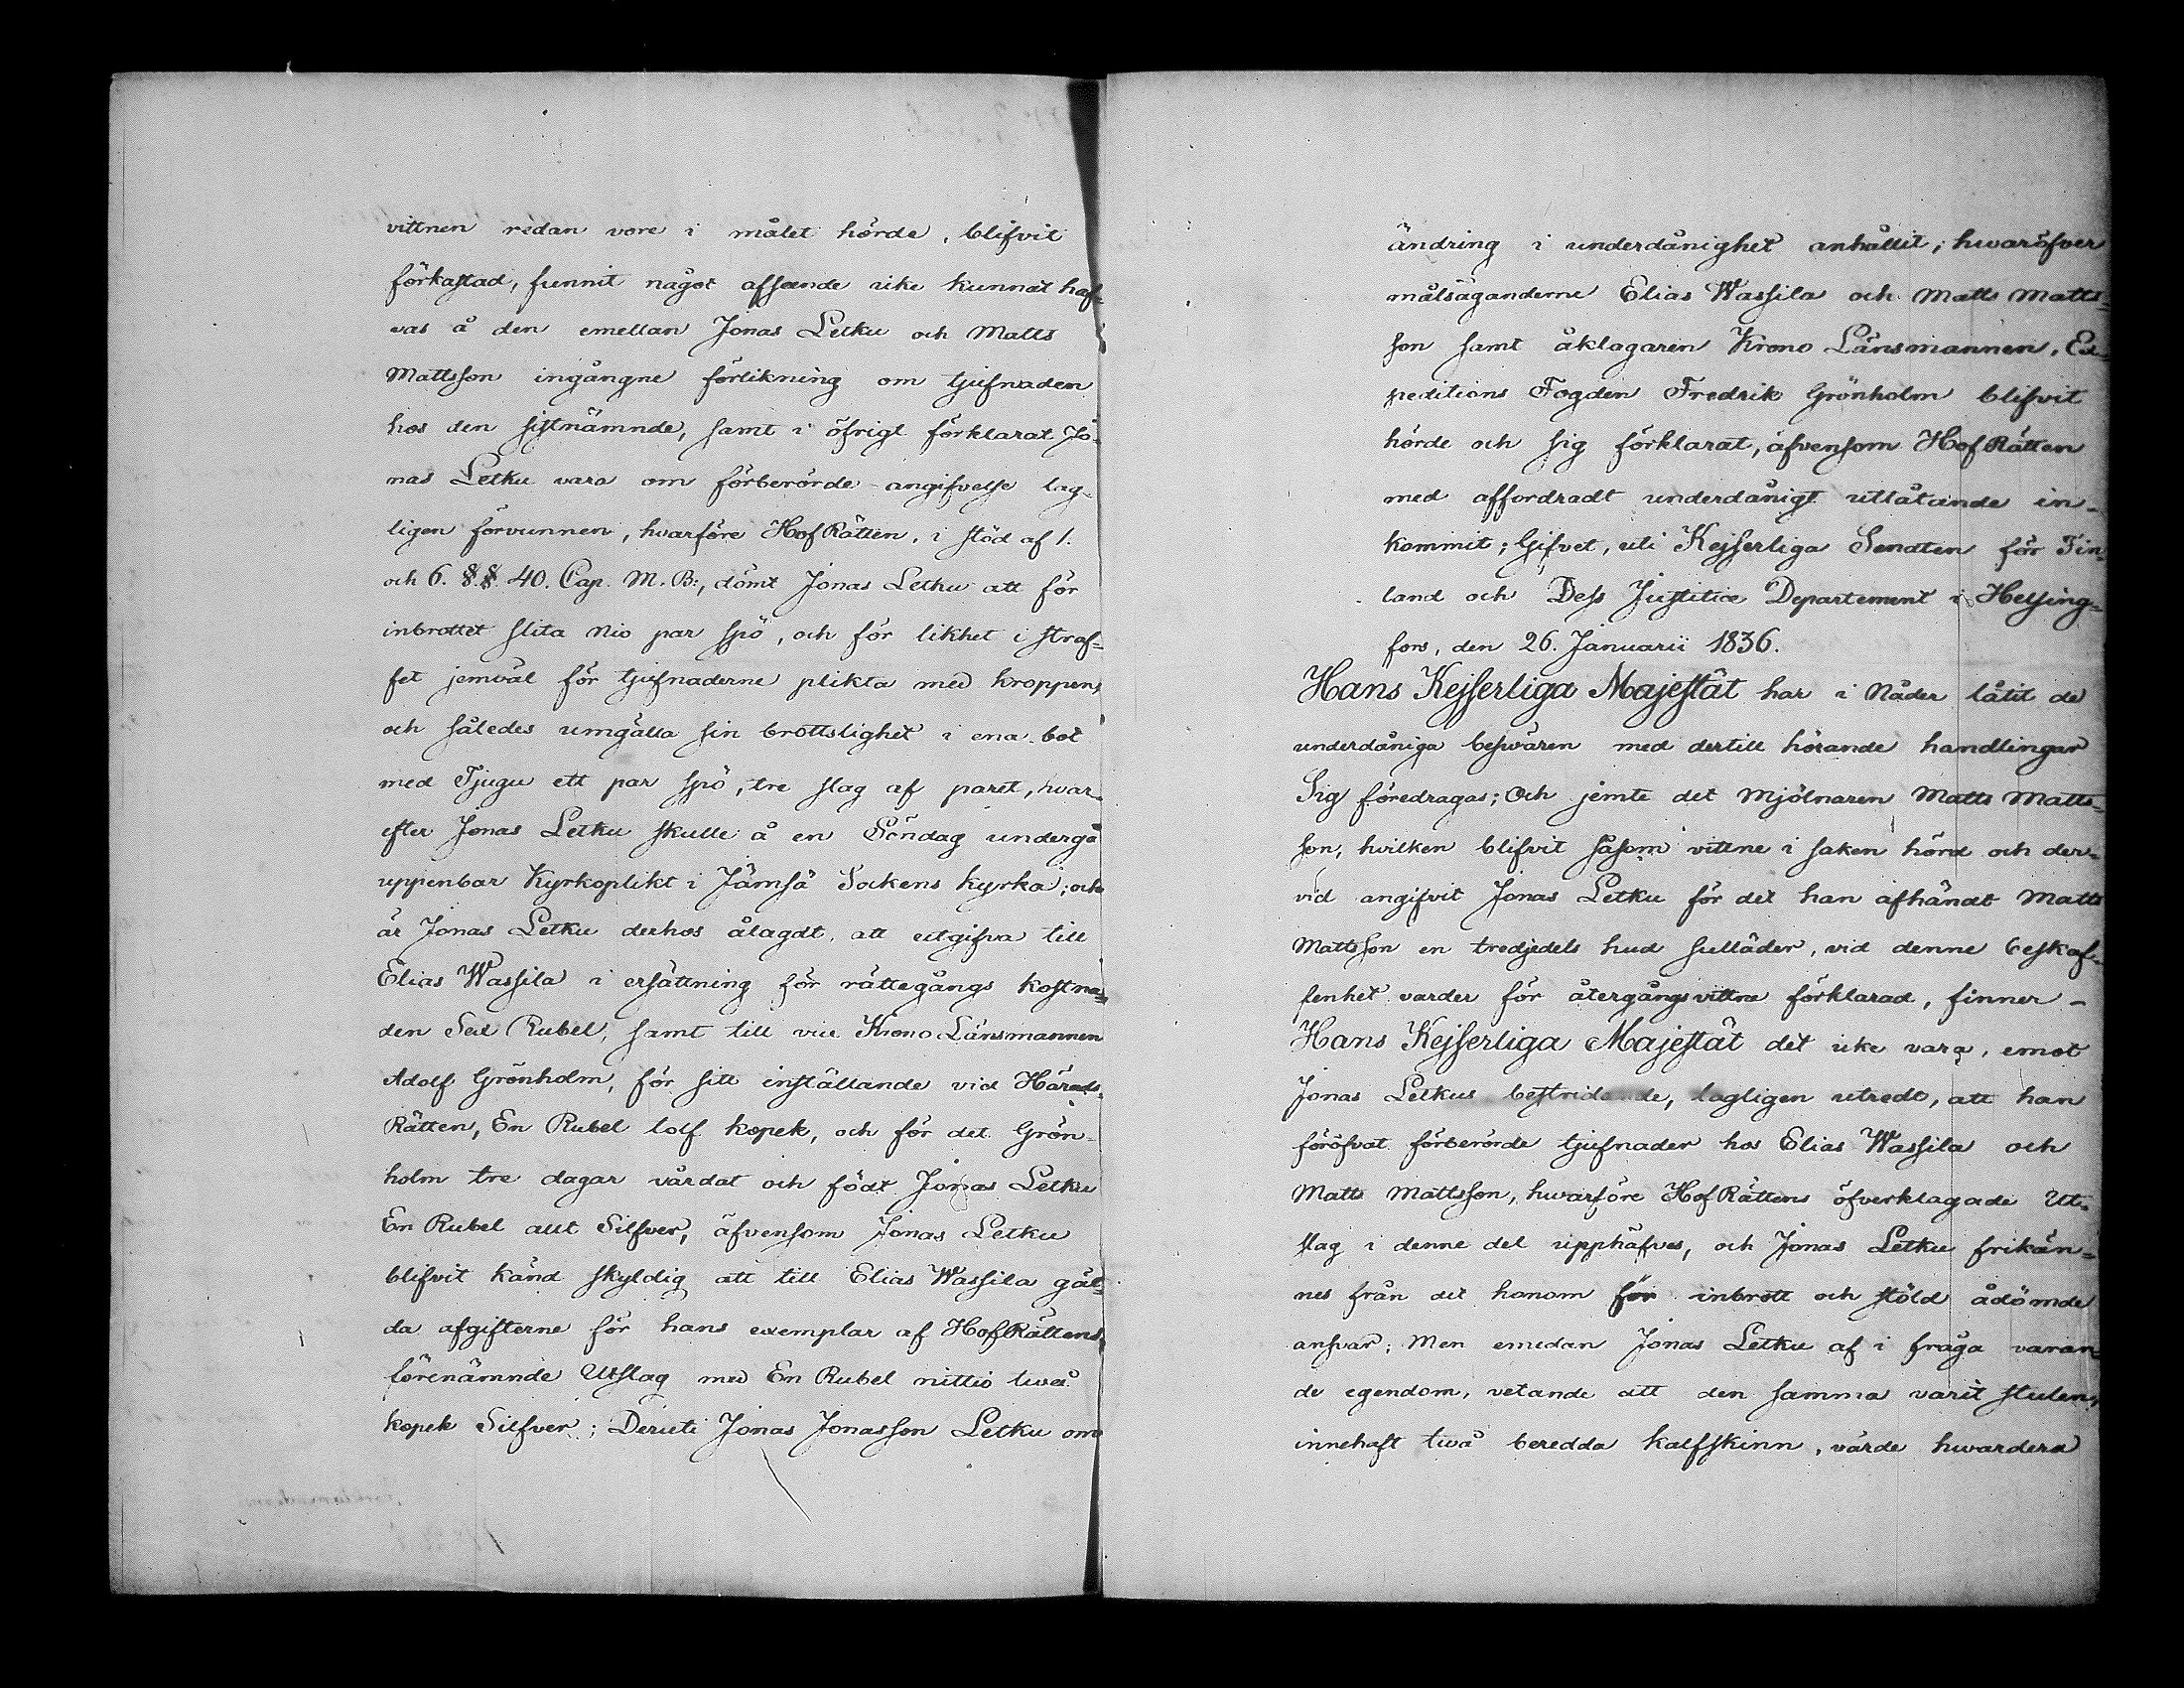 vittnen redan vore i målet hörde, blifvit
förkastad, funnit något afseende icke kunnat haf-
vas å den emellan Jonas Letku och Matts
Mattsson ingångne förlikning om tjufnaden
hos den sistnämnde, samt i öfrigt förklarat Jo-
nas Letku vara om förberörde angifvelse lag-
ligen förvunnen, hvarföre HofRätten, i stöd af 1.
och 6. §§ 40. Cap. M. B:, dömt Jonas Letku att för
inbrottet slita Nio par spö, och för likhet i straf-
fet jemväl för tjufnaderne plikta med kroppen,
och således umgälla sin brottslighet i ena bot
med Tjugu ett par spö, tre slag af paret, hvar-
efter Jonas Letku skulle å en Söndag undergå
uppenbar Kyrkoplikt i Jämsä Sockens kyrka; och
är Jonas Letku derhos ålagdt, att utgifva till
Elias Wassila i ersättning för rättegångs kostna-
den Sex Rubel, samt till vice Krono Länsmannen
Adolf Grönholm, för sitt inställande vid Härads
Rätten, En Rubel tolf kopek, och för det Grön-
holm tre dagar vårdat och födt Jonas Letku
En Rubel allt Silfver, äfvensom Jonas Letku
blifvit känd skyldig att till Elias Wassila gäl-
da afgifterne för hans exemplar af HofRättens
förenämnde Utslag med En Rubel nittio twå
kopek Silfver; Deruti Jonas Jonasson Letku om
ändring i underdånighet anhållit; hwaröfver
målsäganderne Elias Wassila och Matts Matts-
son samt åklagaren Krono Länsmannen, Ex-
peditions Fogden Fredrik Grönholm blifvit
hörde och sig förklarat, äfvensom HofRätten
med affordradt underdånigt utlåtande in-
kommit; Gifvet, uti Kejserliga Senaten för Fin-
land och Dess Justitiæ Departement i Helsing-
fors, den 26. Januarii 1836.
Hans Kejserliga Majestät har i Nåder låtit de
underdåniga beswären med dertill hörande handlingar
Sig föredragas; Och jemte det Mjölnaren Matts Matts-
son, hvilken blifvit såsom vittne i saken hörd och der-
vid angifvit Jonas Letku för det han afhändt Matts
Mattsson en tredjedels hud sulläder, vid denne beskaf-
fenhet varder för återgångsvittne förklarad, finner -
Hans Kejserliga Majestät det icke vara, emot
Jonas Letkus bestridande, lagligen utredt, att han
föröfvat förberörde tjufnader hos Elias Wassila och
Matts Mattsson, hwarföre HofRättens öfverklagade Ut-
slag i denne del upphäfves, och Jonas Letku frikän-
nes från det honom för inbrott och stöld ådömde
answar; Men emedan Jonas Letku af i fråga varan-
de egendom, vetande att den samma varit stulen,
innehaft twå beredda kalfskinn, värde hwardera